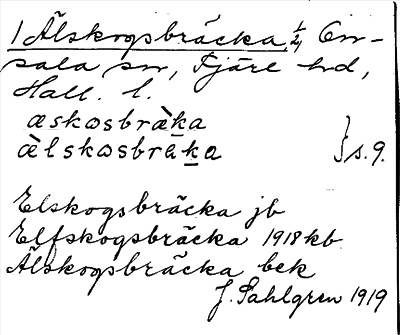 1 Älskogsbräcka, 1/4, On-
sala sn, Fjäre hd,
Hall. l.
æskɷsbræ̀ka
æ̀lskɷsbràka } s. 9.
Elskogsbräcka jb
Elfskogsbräcka 1918 kb
Älskogsbräcka bek
J. Sahlgren 1919